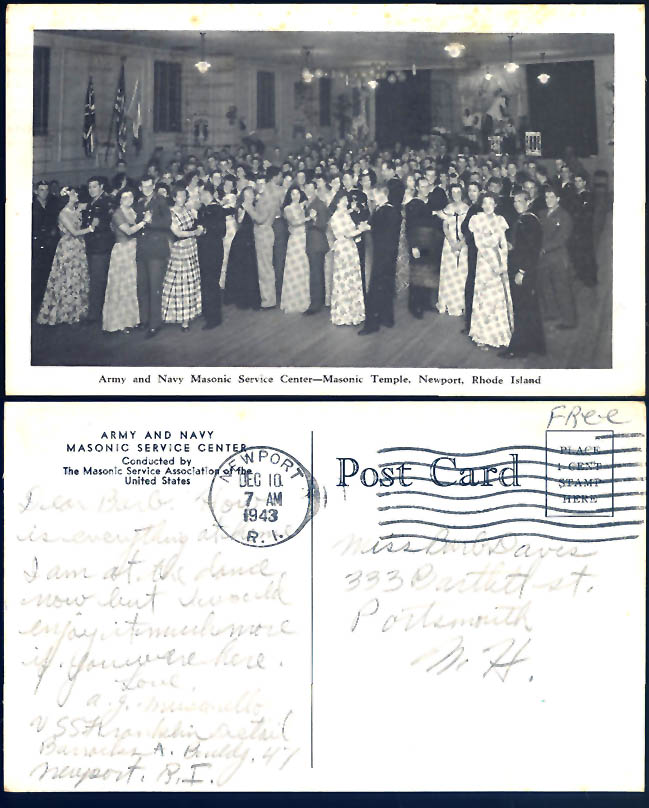 Army and Navy Masonic Service Center—Masonic Temple, Newport, Rhode Island
ARMY AND NAVY
MASONIC SERVICE CENTER
Conducted by
The Masonic Service Association of the
United States
NEWPORT
DEC 10
7 AM
1943
R. I.
Post Card
FRee
PLACE
1 CENT
STAMP
HERE
Dear
is everything at home
I am at the dance
now but I would
enjoy it much more
if you were here.
Love,
a. J.
USS Franklin Detail
Barracks A. Buildg. 47
Newport. R. I.
Miss Barb Davis
333 Bartlett st.
Portsmouth
N. H.